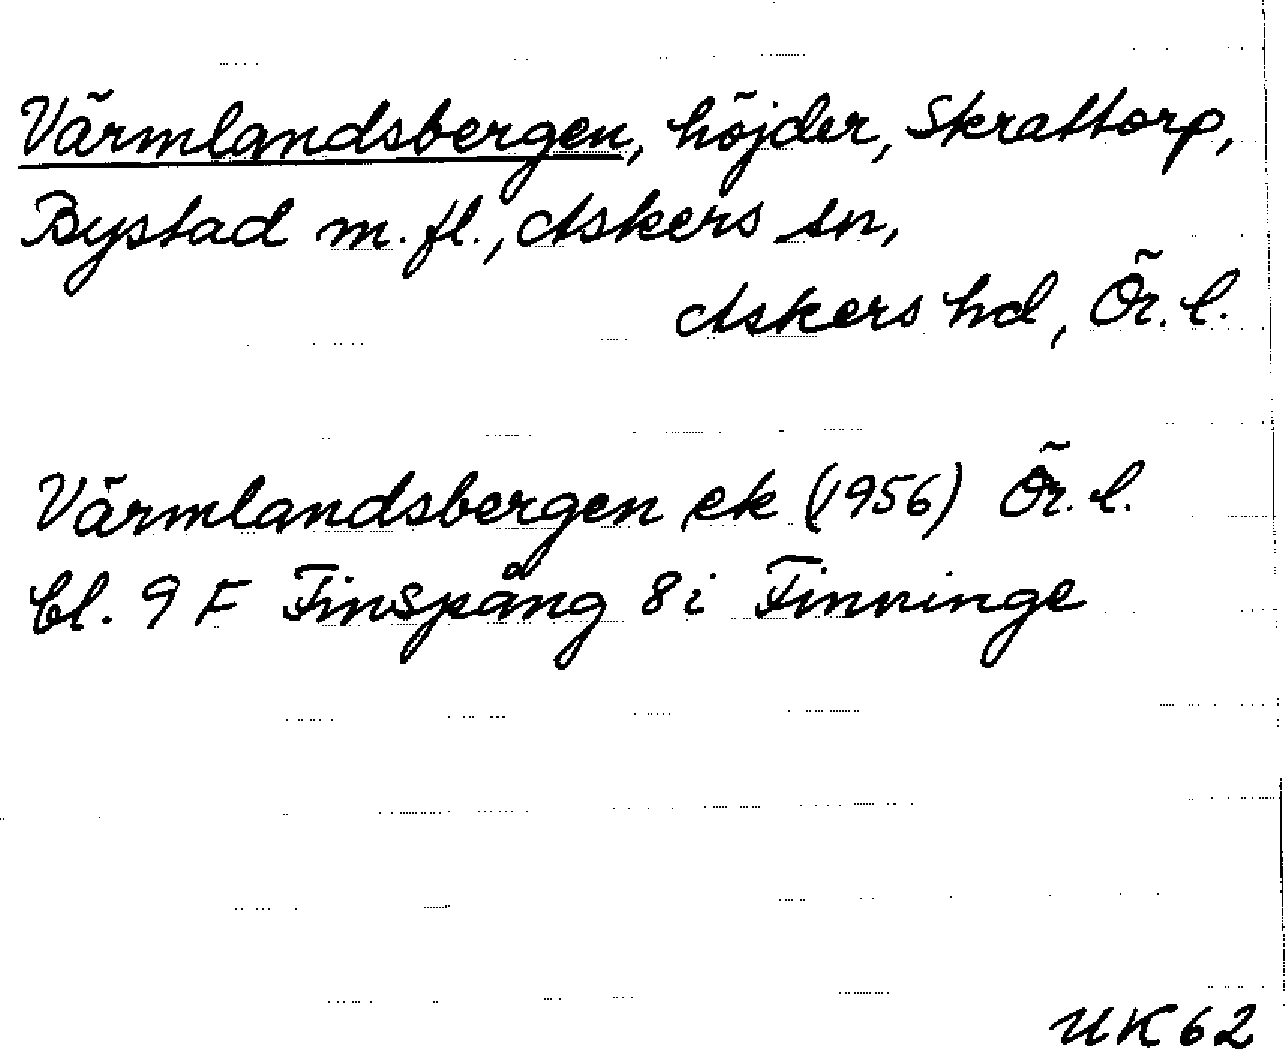 Värmlandsbergen, höjder, Skrattorp,
Bystad m. fl., Askers sn,
Askers hd, Ör. l.
Värmlandsbergen ek (1956) Ör. l.
bl. 9 F Finspång 8 i Finninge
UK 62